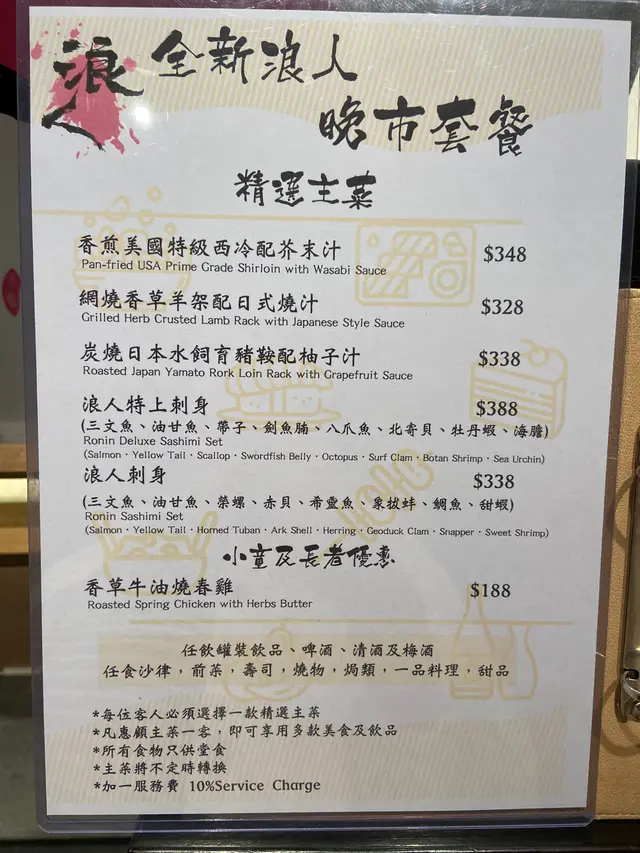 浪人
全新浪人
晚市套餐
精選主菜
香煎美國特級西冷配芥末汁 $348
Pan-fried USA Prime Grade Shirloin with Wasabi Sauce
網燒香草羊架配日式燒汁 $328
Grilled Herb Crusted Lamb Rack with Japanese Style Sauce
炭燒日本水飼育豬鞍配柚子汁 $338
Roasted Japan Yamato Rork Loin Rack with Grapefruit Sauce
浪人特上刺身 $388
(三文魚、油甘魚、帶子、劍魚腩、八爪魚、北寄貝、牡丹蝦、海膽)
Ronin Deluxe Sashimi Set
(Salmon・Yellow Tail・Scallop・Swordfish Belly・Octopus・Surf Clam・Botan Shrimp・Sea Urchin)
浪人刺身 $338
(三文魚、油甘魚、榮螺、赤貝、希靈魚、象拔蚌、鯛魚、甜蝦)
Ronin Sashimi Set
(Salmon・Yellow Tail・Horned Tuban・Ark Shell・Herring・Geoduck Clam・Snapper・Sweet Shrimp)
小童及長者優惠
香草牛油燒春雞 $188
Roasted Spring Chicken with Herbs Butter
任飲罐裝飲品、啤酒、清酒及梅酒
任食沙律，前菜，壽司，燒物，焗類，一品料理，甜品
*每位客人必須選擇一款精選主菜
*凡惠顧主菜一客，即可享用多款美食及飲品
*所有食物只供堂食
*主菜將不定時轉換
*加一服務費 10%Service Charge